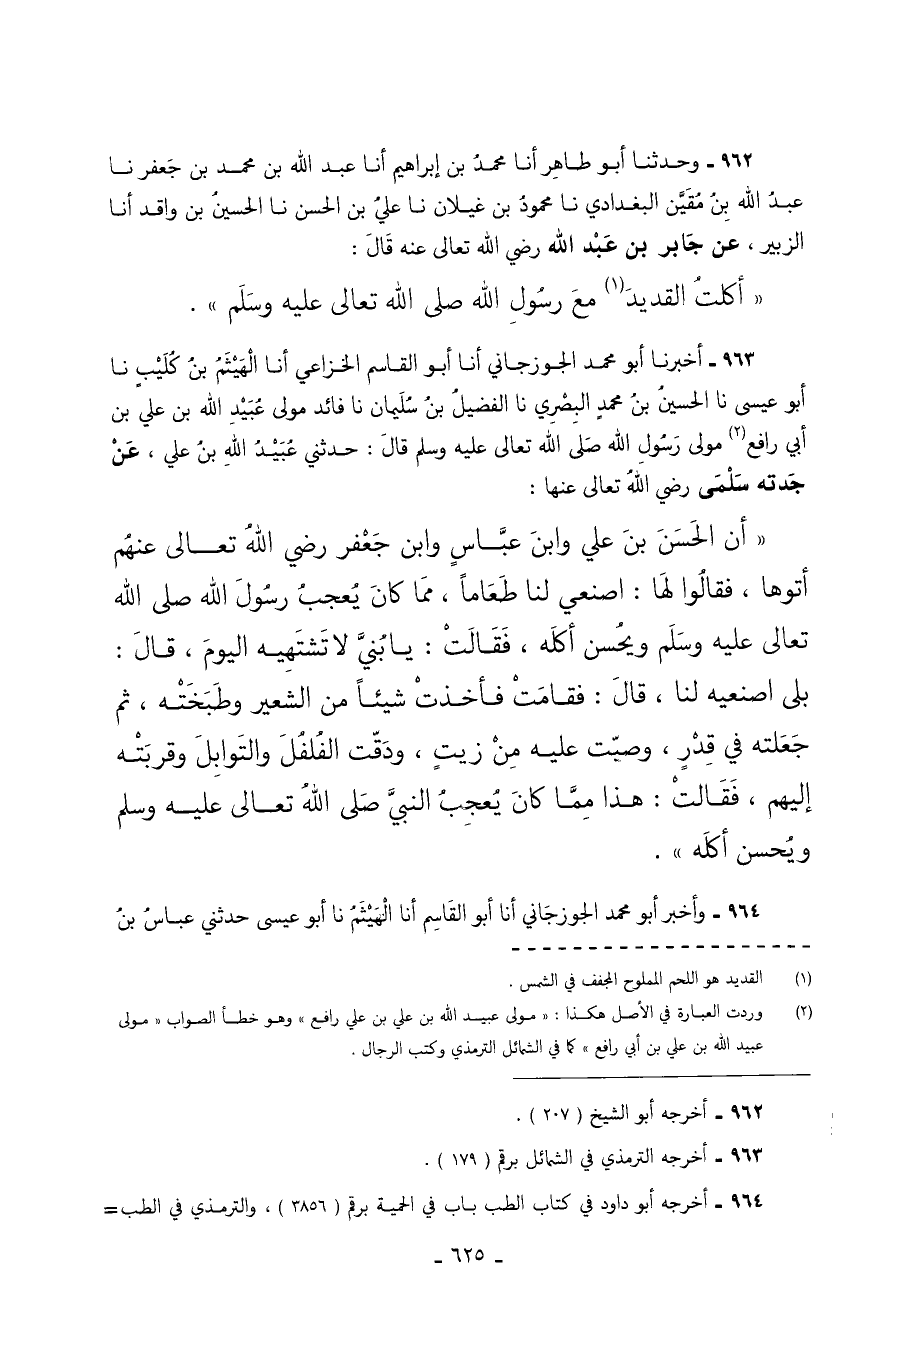 ٩٦٢ ـ وحدثنا أبو طاهر أنا محمدُ بن إبراهيم أنا عبد الله بن محمد بن جَعفر نا
عبدُ الله بنُ مُقَيَّن البغدادي نا محمودُ بن غيلان نا عليُّ بن الحسن نا الحسينُ بن واقد أنا
الزبير ، عن جَابر بن عَبْد الله رضي الله تعالى عنه قَالَ :
« أكلتُ القديدَ(١) معَ رسُولِ الله صلى الله تعالى عليه وسَلَم » .
٩٦٣ ـ أخبرنا أبو محمد الجوزجاني أنا أبو القاسم الخزاعي أنا الْهَيْثَمُ بنُ كُلَيْبٍ نا
أبو عيسى نا الحسينُ بنُ محمدٍ البصْري نا الفضيلُ بنُ سُلَيمان نا فائد مولى عُبَيْدِ الله بن علي بن
أبي رافع(٢) مولى رَسُولِ الله صَلى الله تعالى عليه وسلم قالَ : حدثني عُبَيْدُ اللهِ بنُ علي ، عَنْ
جَدته سَلْمَى رضي اللهُ تعالى عنها :
« أن الحَسَنَ بنَ علي وابنَ عبَّاسٍ وابن جَعْفر رضي اللهُ تعالى عنهُم
أتوها ، فقالُوا لهَا : اصنعي لنا طَعَاماً ، ممَا كانَ يُعجبُ رسُولَ الله صلى الله
تعالى عليه وسَلَم ويحُسن أكلَه ، فَقَالَتْ : يابُنيَّ لا تَشتَهيه اليومَ ، قالَ :
بلى اصنعيه لنا ، قالَ : فقامَتْ فأخذتْ شيئاً من الشعير وطَبَخَتْه ، ثم
جَعَلته في قِدْرٍ ، وصبّت عليه مِنْ زيتٍ ، ودَقّت الفُلفُلَ والتَوابلَ وقربَتْه
إليهم ، فَقَالتْ : هذا مِمَّا كانَ يُعجِبُ النبيَّ صَلى اللهُ تعالى عليه وسلم
ويُحسن أكلَه » .
٩٦٤ ـ وأخبر أبو محمد الجوزجَاني أنا أبو القَاسِم أنا الْهَيْثَمُ نا أبو عيسى حدثني عباسُ بنُ
(١) القديد هو اللحم المملوح المجفف في الشمس .
(٢) وردت العبارة في الأصل هكذا : « مولى عبيد الله بن علي بن علي رافع » وهو خطأ الصواب « مولى
عبيد الله بن علي بن أبي رافع » كما في الشمائل الترمذي وكتب الرجال .
٩٦٢ ـ أخرجه أبو الشيخ ( ٢٠٧ ) .
٩٦٣ ـ أخرجه الترمذي في الشمائل برقم ( ١٧٩ ) .
٩٦٤ ـ أخرجه أبو داود في كتاب الطب باب في الحمية برقم ( ٣٨٥٦ ) ، والترمذي في الطب=
ـ ٦٢٥ ـ